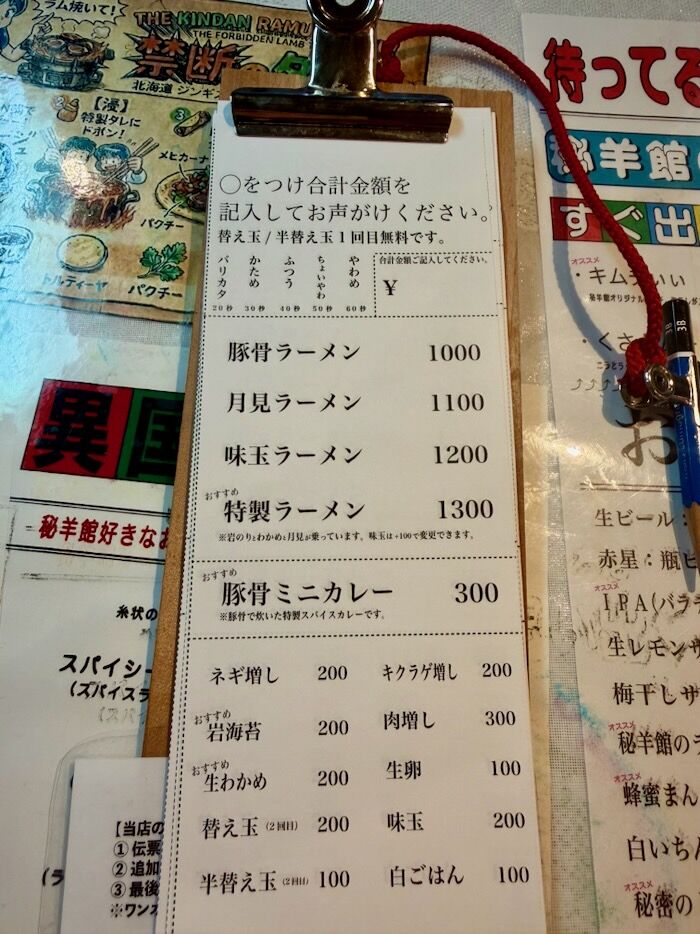 ラム焼いて!
THE KINDAN RAMU
THE FORBIDDEN LAMB
禁断の
北海道 ジンギス
【漫】
特製タレに
ドボン!
メヒカーナ
パクチー
トルティーヤ
パクチー
異国
秘羊館好きなお
糸状の
スパイシー
(スパイスラ
【当店の
① 伝票
② 追加
③ 最後
※ワンオ
〇をつけ合計金額を
記入してお声がけください。
替え玉 / 半替え玉1回目無料です。
バリカタ
かため
ふつう
ちょいやわ
やわめ
20秒 30秒 40秒 50秒 60秒
合計金額ご記入してください。
¥
豚骨ラーメン 1000
月見ラーメン 1100
味玉ラーメン 1200
おすすめ
特製ラーメン 1300
※岩のりとわかめと月見が乗っています。味玉は+100で変更できます。
おすすめ
豚骨ミニカレー 300
※豚骨で炊いた特製スパイスカレーです。
ネギ増し 200 キクラゲ増し 200
おすすめ
岩海苔 200 肉増し 300
おすすめ
生わかめ 200 生卵 100
替え玉(2回目) 200 味玉 200
半替え玉(2回目) 100 白ごはん 100
待ってる
秘羊館
すぐ出
オススメ
・キムチ
秘羊館オリジナル
・くさ
3B
お
生ビール:
赤星:瓶ビ
オススメ
IPA(バラ
生レモンサ
梅干しサ
オススメ
秘羊館のラ
オススメ
蜂蜜まん
白いちん
オススメ
秘密の